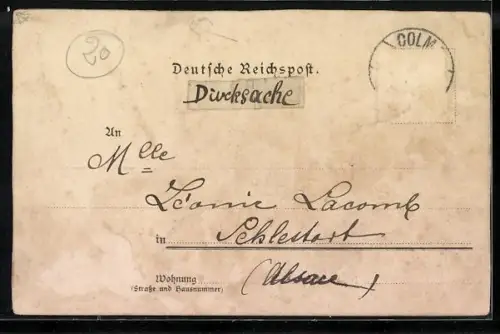 20
COLM
Deutsche Reichspost.
Drucksache
An
Mlle
Léonie Lacomb
in Schlestatt
Wohnung (Alsace)
(Straße und Hausnummer)